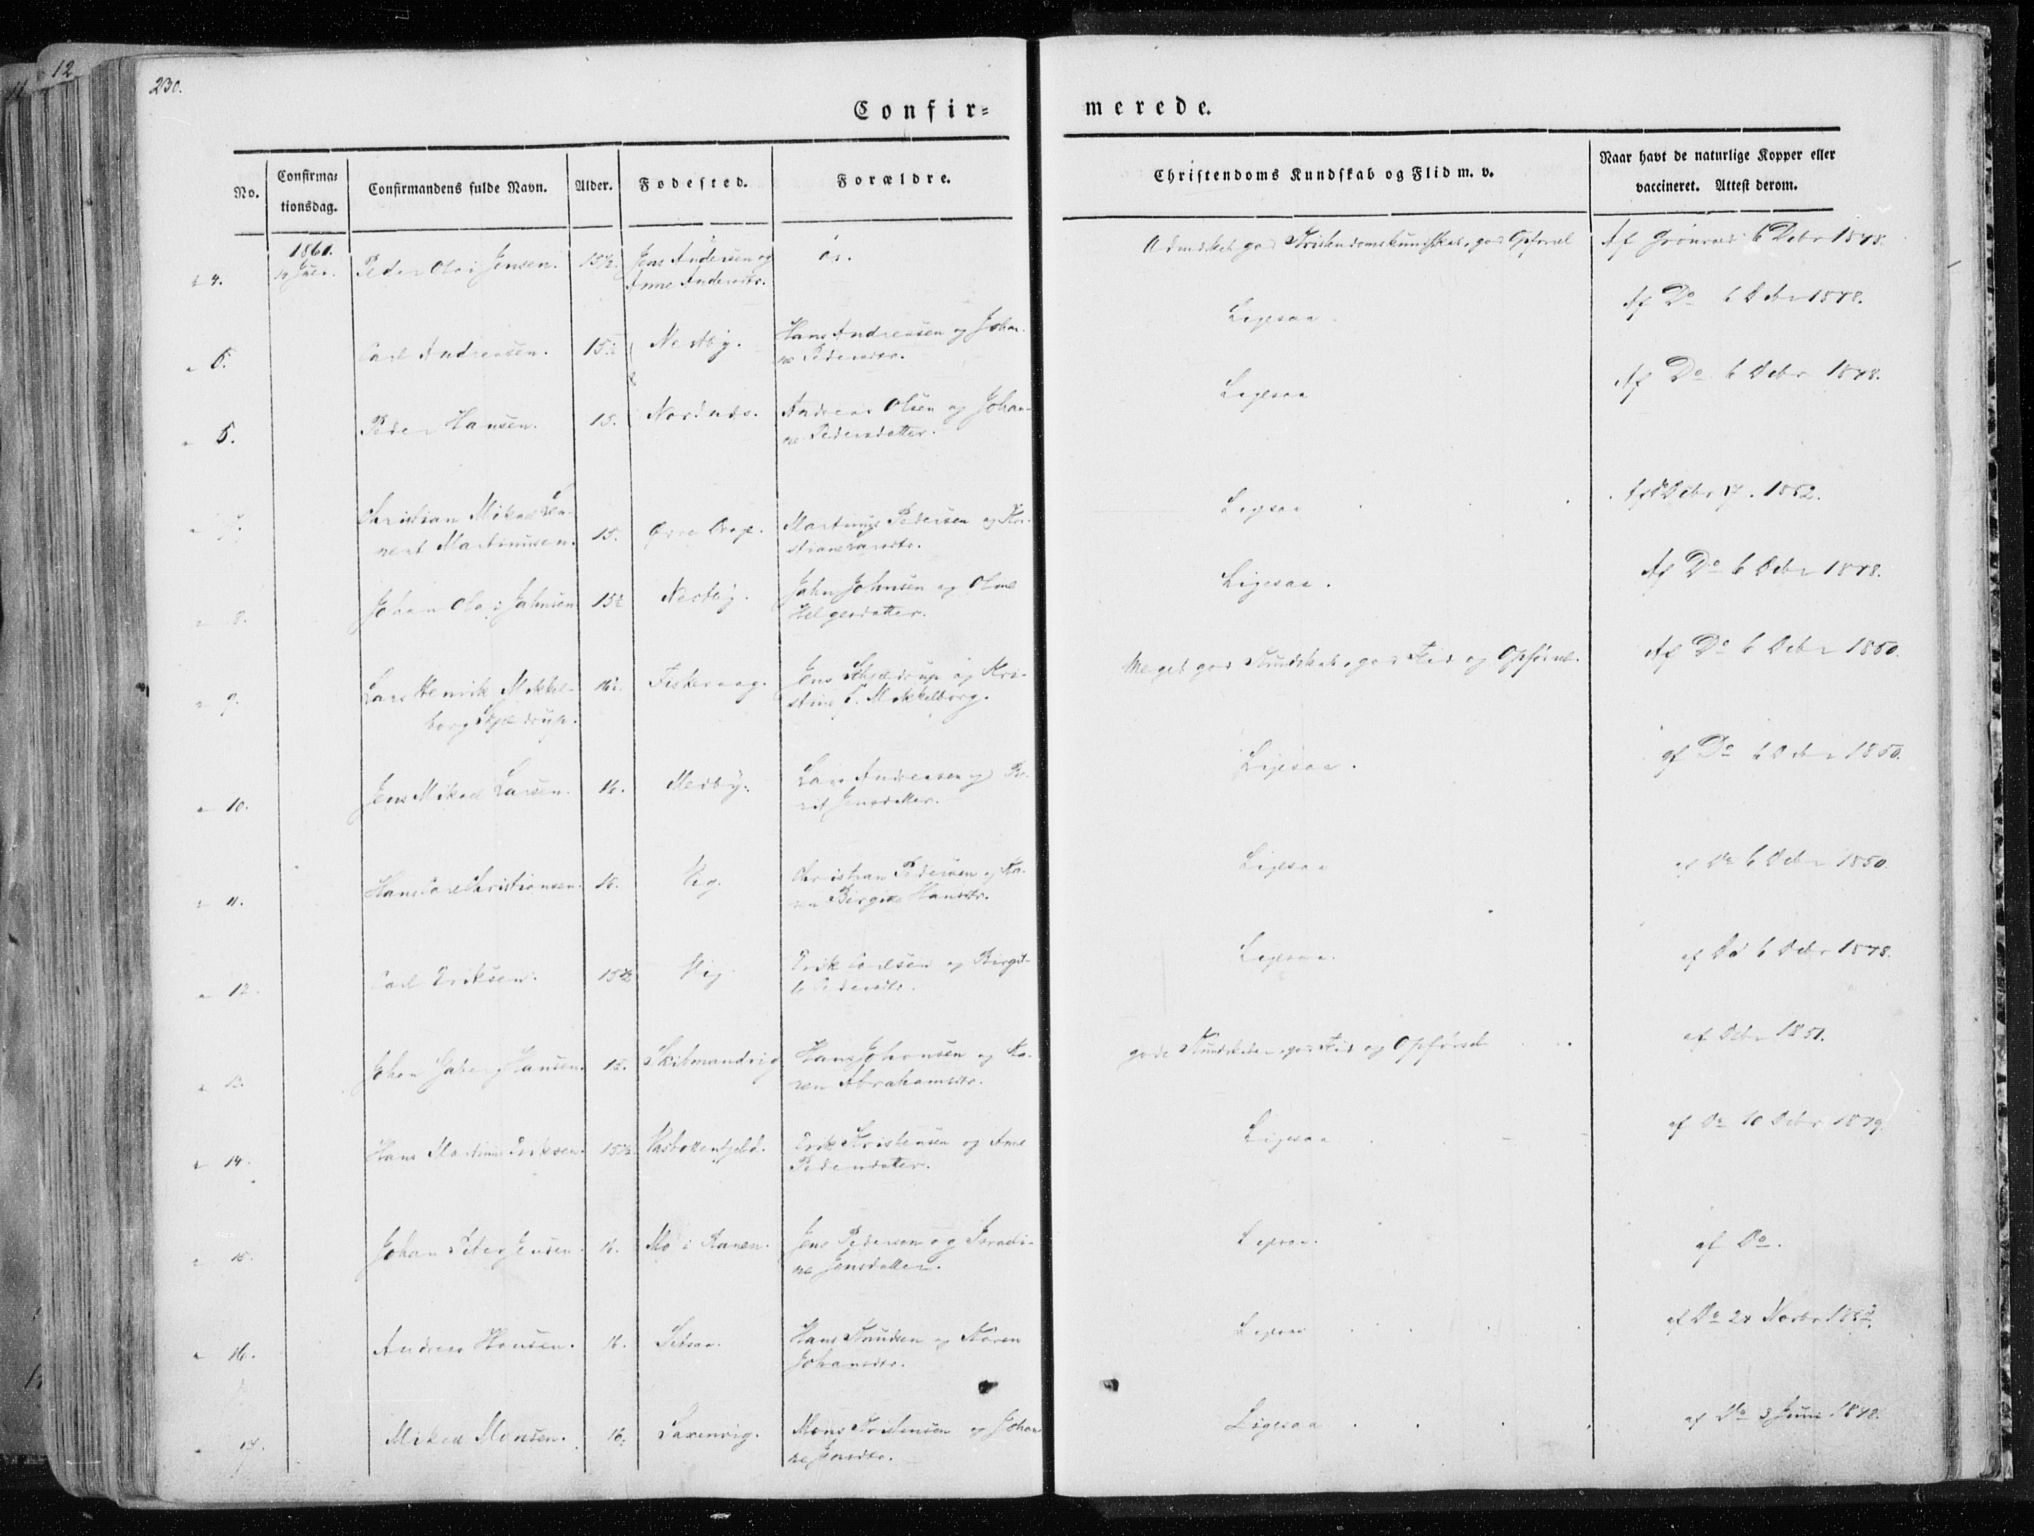 12
230.
Confir=
merede.
No.
Confirma=
tionsdag.
Confirmandens fulde Navn.
Alder.
Fødested.
Forældre.
Christendoms Kundskab og Flid m. v.
Naar havt de naturlige Kopper eller
vaccineret. Attest derom.
1861.
4.
Peder Olai Jensen.
15½
Jens Andersen og
Anne Andersdtr.
god Christendomskundskab, god Opførsel
Af Grønnaas 6 Debr 1848.
6.
Carl Andreasen.
15½
Nestby.
Hans Andreasen og Johan-
ne Pedersdtr.
Ligesaa.
Af Do 6 Debr 1848.
5.
Peder Hansen.
15.
Nordnæs.
Andreas Olsen og Johan-
ne Pedersdatter.
Ligesaa
Af Do 6 Debr 1848.
7.
Christian Mikal
Martinusen.
15.
Martinus Pedersen og
Ligesaa
1852.
8.
Johan Olai Jahnsen
15½
Nestby.
Jahn Johnsen og Oline
Helgesdatter.
Ligesaa.
Af Do 6 Debr 1848.
9.
Lars Henrik Mikkel-
borg Skjeldrup.
16½.
Fiskevaag.
Jens Skjeldrup og Kri-
stine F. Mikkelborg.
Meget god Kundskab, god Flid og Opførsel.
Af Do 6 Debr 1850.
10.
Jens Mikal Larsen.
16.
Medby.
Lars Andreasen og Be-
rit Jensdatter.
Ligesaa.
af Do 6 Debr 1850.
11.
Hans Carl Christiansen.
16.
Vig.
Christian Pedersen og Ka-
ren Birgitte Hansdtr.
Ligesaa
af Do 6 Debr 1850.
12.
Carl Eriksen.
15½
Vig
Erik Carlsen og Birgit-
te Pedersdtr.
Ligesaa.
af Do 6 Debr 1848.
13.
Johan Hansen.
15.
Skibmandvig
Hans Johansen og Ka-
ren Abrahamsdtr.
gode Kundskaber, god Flid og Opførsel
af Debr 1851.
14.
Hans Martinus Eriksen.
15½.
Vasbottenfjeld.
Erik Kristensen og Ane
Pedersdatter.
Ligesaa
af Do 10 Debr 1849.
15.
Johan Peter Jensen.
16.
Mo i Ranen.
Jens Pedersen og
Jensdatter.
Ligesaa.
af Do.
16.
Andreas Hansen.
16.
Setsaa.
Hans Knudsen og Karen
Johansdtr.
Ligesaa
af Do 24 Novbr
17.
Mikal Monsen.
16.
Saxenvig.
Mons Kristensen og Johan-
ne Jensdtr.
Ligesaa
af Do 3 Juni 1848.